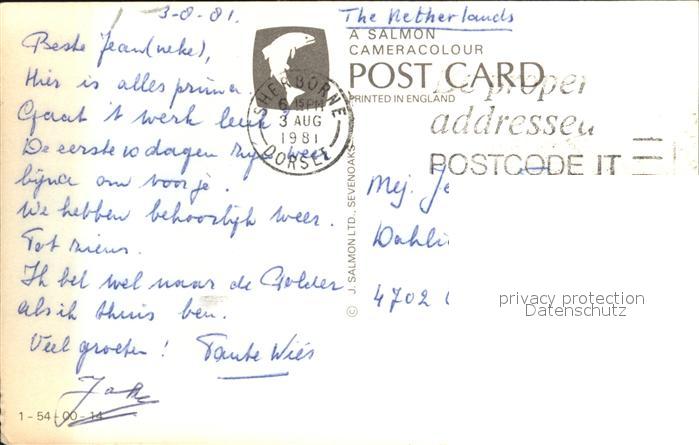 3-8-81.
Beste Jean(neke),
Hier is alles prima.
Gaat 't werk leuk?
De eerste 10 dagen zijn weer
bijna om voor je.
We hebben behoorlijk weer.
Tot ziens.
Ik bel wel naar de Polder
als ik thuis ben.
Veel groeten! Tante Wiés
1-54-00-14
The Netherlands
A SALMON
CAMERACOLOUR
POST CARD
PRINTED IN ENGLAND
SHERBORNE
6 15 PM
3 AUG
1981
DORSET
Be proper
addressed
POSTCODE IT
© J. SALMON LTD., SEVENOAKS
Mej. Je
Dahli
4702
privacy protection
Datenschutz